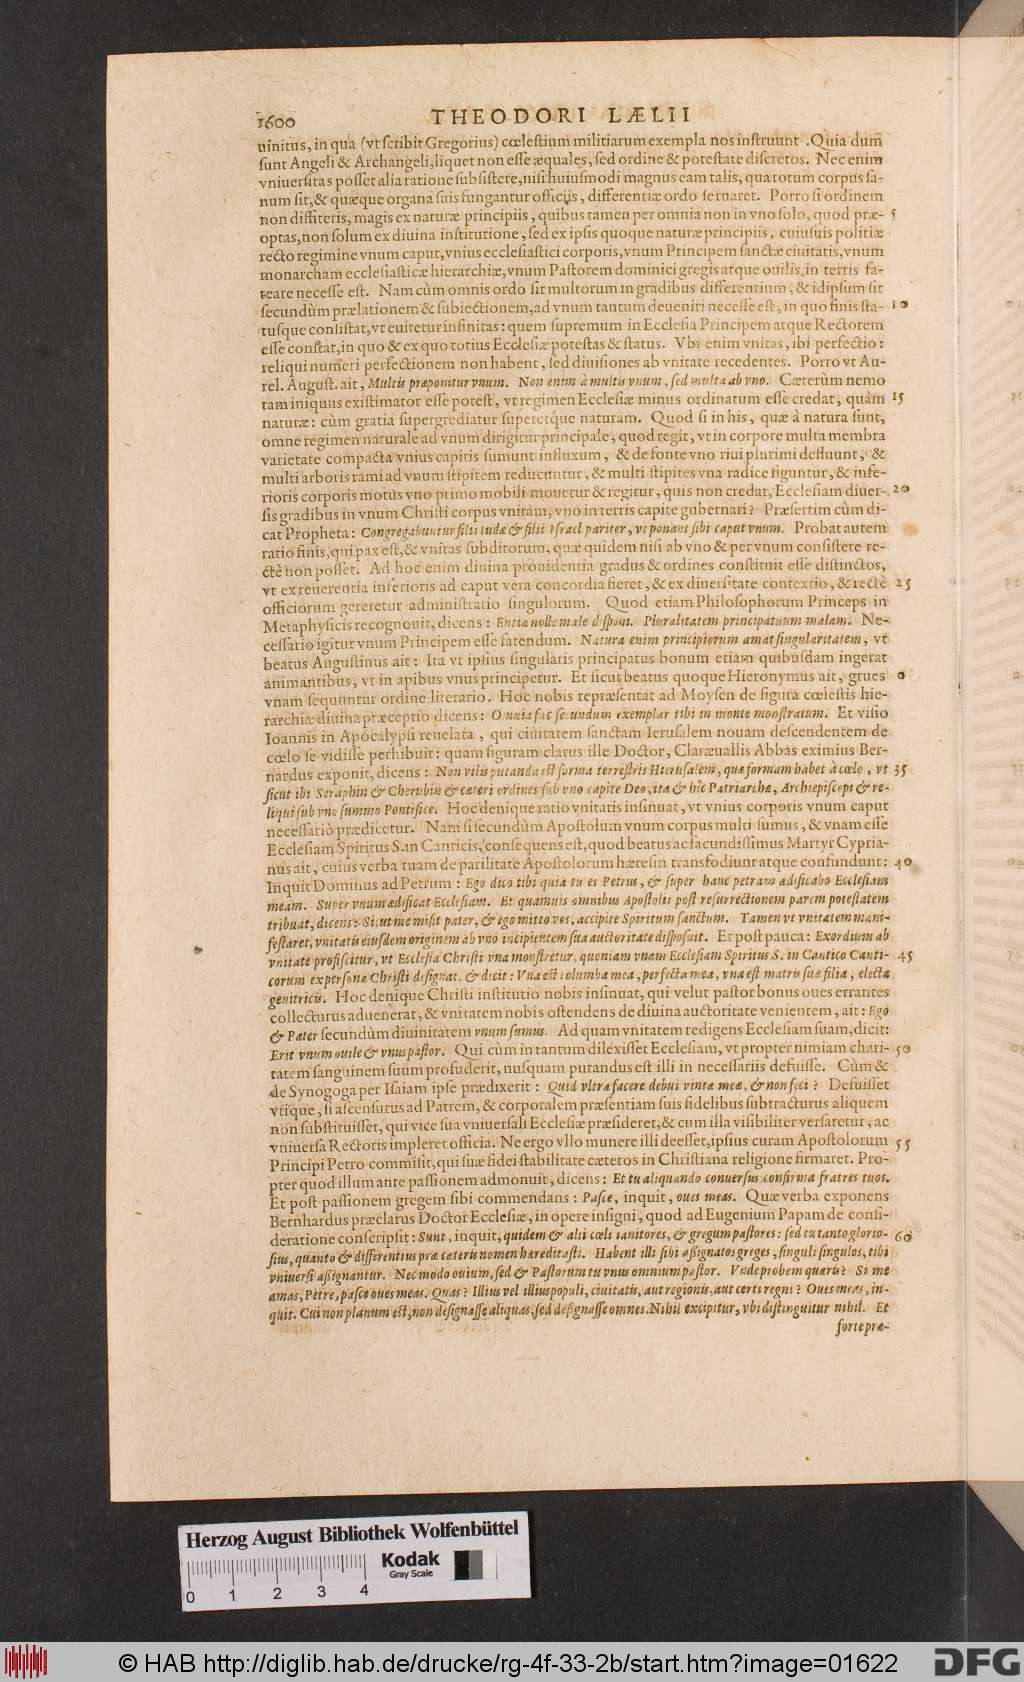 1600 THEODORI LÆLII
uinitus, in qua (vt scribit Gregorius) cœlestium militiarum exempla nos instruunt .Quia dum
sunt Angeli & Archangeli, liquet non esse æquales, sed ordine & potestate discretos. Nec enim
vniuersitas posset alia ratione subsistere, nisi huiusmodi magnus eam talis, qua totum corpus sa-
num sit, & quæque organa suis fungantur officijs, differentiæ ordo seruaret. Porro si ordinem
non diffiteris, magis ex naturæ principiis, quibus tamen per omnia non in vno solo, quod præ- 5
optas, non solum ex diuina institutione, sed ex ipsis quoque naturæ principiis, cuiusuis politiæ
recto regimine vnum caput, vnius ecclesiastici corporis, vnum Principem sanctæ ciuitatis, vnum
monarcham ecclesiasticæ hierarchiæ, vnum Pastorem dominici gregis atque ouilis, in terris fa-
teare necesse est. Nam cùm omnis ordo sit multorum in gradibus differentium, & idipsum sit
secundùm prælationem & subiectionem, ad vnum tantum deueniri necesse est, in quo finis sta- 10
tusque consistat, vt euitetur infinitas: quem supremum in Ecclesia Principem atque Rectorem
esse constat, in quo & ex quo totius Ecclesiæ potestas & status. Vbi enim vnitas, ibi perfectio:
reliqui numeri perfectionem non habent, sed diuisiones ab vnitate recedentes. Porro vt Au-
rel. August. ait, Multis præponitur vnum. Non enim à multis vnum, sed multa ab vno. Cæterùm nemo
tam iniquus existimator esse potest, vt regimen Ecclesiæ minus ordinatum esse credat, quàm 15
naturæ: cùm gratia supergrediatur superetque naturam. Quod si in his, quæ à natura sunt,
omne regimen naturale ad vnum dirigitur principale, quod regit, vt in corpore multa membra
varietate compacta vnius capitis sumunt influxum, & de fonte vno riui plurimi defluunt, &
multi arboris rami ad vnum stipitem reducuntur, & multi stipites vna radice figuntur, & infe-
rioris corporis motus vno primo mobili mouetur & regitur, quis non credat, Ecclesiam diuer- 20
sis gradibus in vnum Christi corpus vnitam, vno in terris capite gubernari? Præsertim cùm di-
cat Propheta: Congregabuntur filii Iudæ & filii Israel pariter, vt ponant sibi caput vnum. Probat autem
ratio finis, qui pax est, & vnitas subditorum, quæ quidem nisi ab vno & per vnum consistere re-
ctè non posset. Ad hoc enim diuina prouidentia gradus & ordines constituit esse distinctos,
vt ex reuerentia inferioris ad caput vera concordia fieret, & ex diuersitate contextio, & rectè 25
officiorum gereretur administratio singulorum. Quod etiam Philosophorum Princeps in
Metaphysicis recognouit, dicens: Entia nolle male disponi. Pluralitatem principatuum malam. Ne-
cessario igitur vnum Principem esse fatendum. Natura enim principiorum amat singularitatem, vt
beatus Augustinus ait: Ita vt ipsius singularis principatus bonum etiam quibusdam ingerat
animantibus, vt in apibus vnus principetur. Et sicut beatus quoque Hieronymus ait, grues 0
vnam sequuntur ordine literario. Hoc nobis repræsentat ad Moysen de figura cœlestis hie-
rarchiæ diuina præceptio dicens: Omnia fac secundum exemplar tibi in monte monstratum. Et visio
Ioannis in Apocalypsi reuelata, qui ciuitatem sanctam Ierusalem nouam descendentem de
cœlo se vidisse perhibuit: quam figuram clarus ille Doctor, Claræuallis Abbas eximius Ber-
nardus exponit, dicens: Non vilis putanda est forma terrestris Hierusalem, quæ formam habet à cœlo, vt 35
sicut ibi Seraphin & Cherubin & cæteri ordines sub vno capite Deo, ita & hîc Patriarchæ, Archiepiscopi & re-
liqui sub vno summo Pontifice. Hoc denique ratio vnitatis insinuat, vt vnius corporis vnum caput
necessariò prædicetur. Nam si secundùm Apostolum vnum corpus multi sumus, & vnam esse
Ecclesiam Spiritus S. in Canticis, consequens est, quod beatus ac facundissimus Martyr Cypria-
nus ait, cuius verba tuam de parilitate Apostolorum hæresin transfodiunt atque confundunt: 40
Inquit Dominus ad Petrum: Ego dico tibi quia tu es Petrus, & super hanc petram ædificabo Ecclesiam
meam. Super vnum ædificat Ecclesiam. Et quamuis omnibus Apostolis post resurrectionem parem potestatem
tribuat, dicens: Sicut me misit pater, & ego mitto vos, accipite Spiritum sanctum. Tamen vt vnitatem mani-
festaret, vnitatis eiusdem originem ab vno incipientem sua auctoritate disposuit. Et post pauca: Exordium ab
vnitate proficiscitur, vt Ecclesia Christi vna monstretur, quoniam vnam Ecclesiam Spiritus S. in Cantico Canti- 45
corum ex persona Christi designat, & dicit: Vna est columba mea, perfecta mea, vna est matris suæ filia, electa
genitricis. Hoc denique Christi institutio nobis insinuat, qui velut pastor bonus oues errantes
collecturus aduenerat, & vnitatem nobis ostendens de diuina auctoritate venientem, ait: Ego
& Pater secundùm diuinitatem vnum sumus. Ad quam vnitatem redigens Ecclesiam suam, dicit:
Erit vnum ouile & vnus pastor. Qui cùm in tantum dilexisset Ecclesiam, vt propter nimiam chari- 50
tatem sanguinem suum profuderit, nusquam putandus est illi in necessariis defuisse. Cùm &
de Synogoga per Isaiam ipse prædixerit: Quid vltra facere debui vineæ meæ, & non feci? Defuisset
vtique, si ascensurus ad Patrem, & corporalem præsentiam suis fidelibus subtracturus aliquem
non substituisset, qui vice sua vniuersali Ecclesiæ præsideret, & cum illa visibiliter versaretur, ac
vniuersa Rectoris impleret officia. Ne ergo vllo munere illi deesset, ipsius curam Apostolorum 55
Principi Petro commisit, qui suæ fidei stabilitate cæteros in Christiana religione firmaret. Pro-
pter quod illum ante passionem admonuit, dicens: Et tu aliquando conuersus confirma fratres tuos.
Et post passionem gregem sibi commendans: Pasce, inquit, oues meas. Quæ verba exponens
Bernhardus præclarus Doctor Ecclesiæ, in opere insigni, quod ad Eugenium Papam de consi-
deratione conscripsit: Sunt, inquit, quidem & alii cœli ianitores, & gregum pastores: sed tu tanto glorio- 60
sius, quanto & differentius præ cæteris nomen hæreditasti. Habent illi sibi aßignatos greges, singuli singulos, tibi
vniuersi aßignantur. Nec modo ouium, sed & Pastorum tu vnus omnium pastor. Vnde probem quæris? Si me
amas, Petre, pasce oues meas. Quas? Illius vel illius populi, ciuitatis, aut regionis, aut certi regni? Oues meas, in-
quit. Cui non planum est, non designasse aliquas, sed designasse omnes. Nihil excipitur, vbi distinguitur nihil. Et
forte præ-
Herzog August Bibliothek Wolfenbüttel
Kodak
Gray Scale
0 1 2 3 4
© HAB http://diglib.hab.de/drucke/rg-4f-33-2b/start.htm?image=01622 DFG